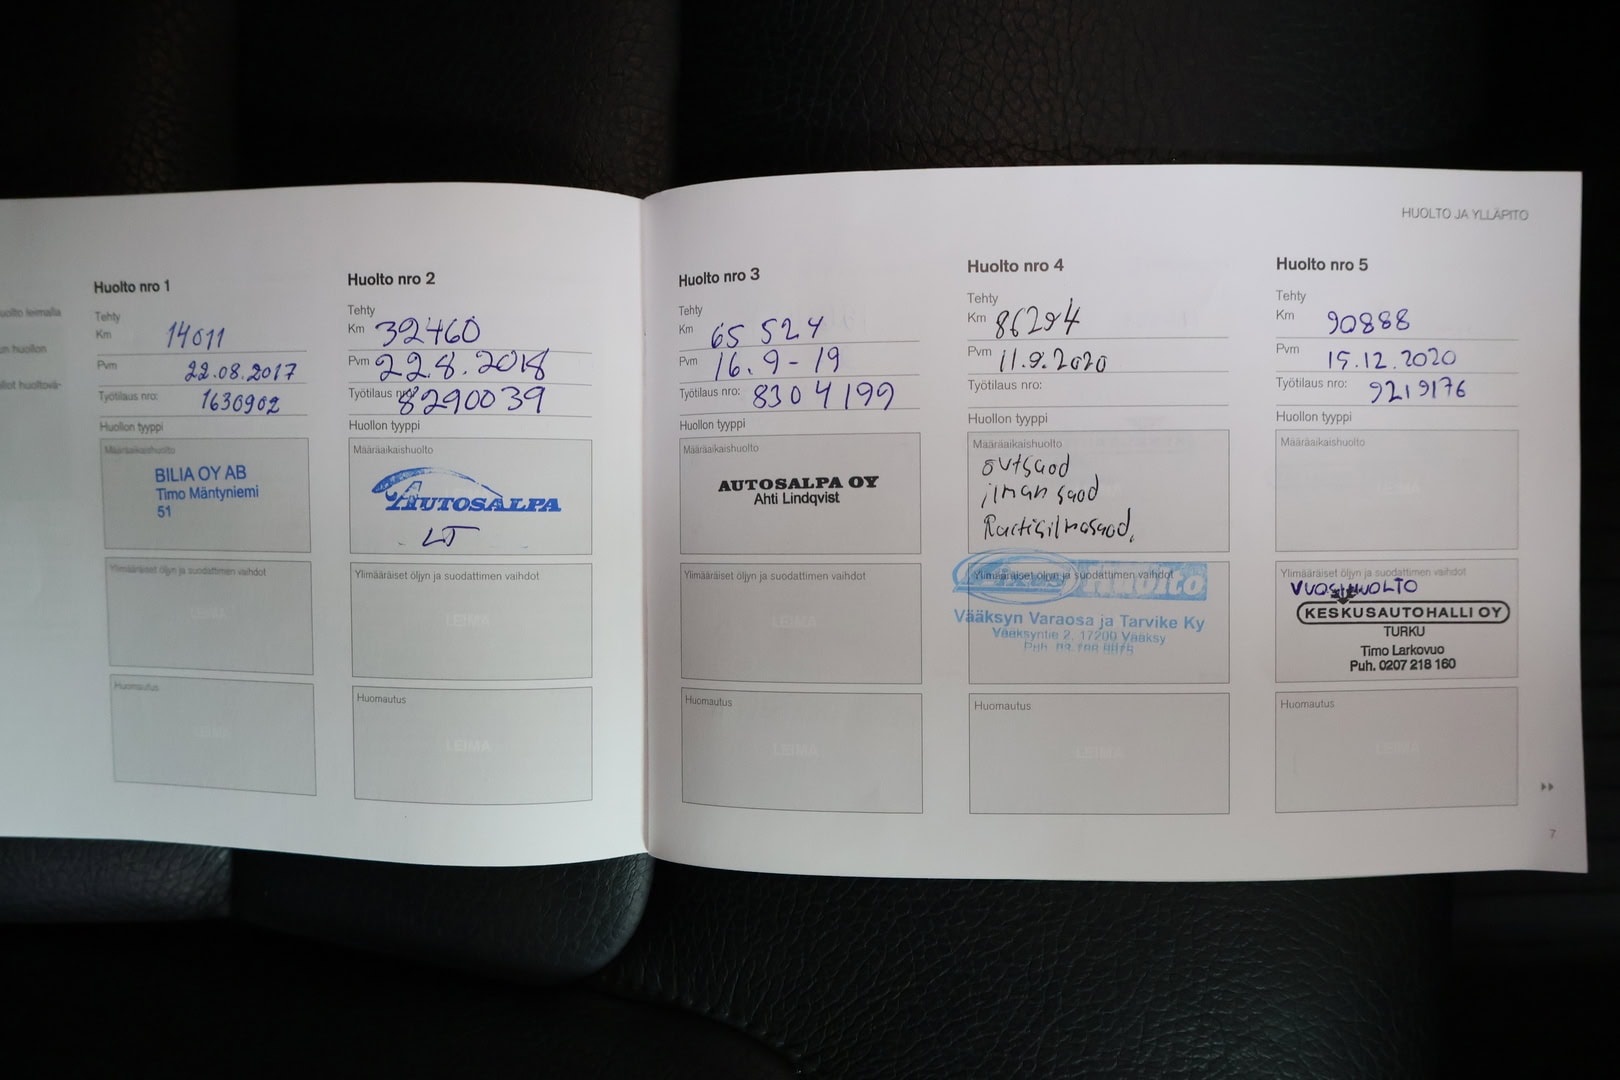 HUOLTO JA YLLÄPITO
uolto leimalla
un huollon
Huolto nro 1
Tehty
Km 14011
Pvm 22.08.2017
Työtilaus nro: 1630902
Huollon tyyppi
Määräaikaishuolto
BILIA OY AB
Timo Mäntyniemi
51
Ylimääräiset öljyn ja suodattimen vaihdot
LEIMA
Huomautus
LEIMA
Huolto nro 2
Tehty
Km 32460
Pvm 22.8.2018
Työtilaus nro: 8290039
Huollon tyyppi
Määräaikaishuolto
AUTOSALPA
LT
Ylimääräiset öljyn ja suodattimen vaihdot
LEIMA
Huomautus
LEIMA
Huolto nro 3
Tehty
Km 65 524
Pvm 16.9-19
Työtilaus nro: 8304199
Huollon tyyppi
Määräaikaishuolto
AUTOSALPA OY
Ahti Lindqvist
Ylimääräiset öljyn ja suodattimen vaihdot
LEIMA
Huomautus
LEIMA
Huolto nro 4
Tehty
Km 86294
Pvm 11.9.2020
Työtilaus nro:
Huollon tyyppi
Määräaikaishuolto
öljtsuod
ilman suod
Raitisilmasuod.
Ylimääräiset öljyn ja suodattimen vaihdot
Huolto
Vääksyn Varaosa ja Tarvike Ky
Vääksyntie 2, 17200 Vääksy
Puh.
Huomautus
LEIMA
Huolto nro 5
Tehty
Km 90888
Pvm 15.12.2020
Työtilaus nro: 9219176
Huollon tyyppi
Määräaikaishuolto
LEIMA
Ylimääräiset öljyn ja suodattimen vaihdot
VUOSIHUOLTO
KESKUSAUTOHALLI OY
TURKU
Timo Larkovuo
Puh. 0207 218 160
Huomautus
LEIMA
7